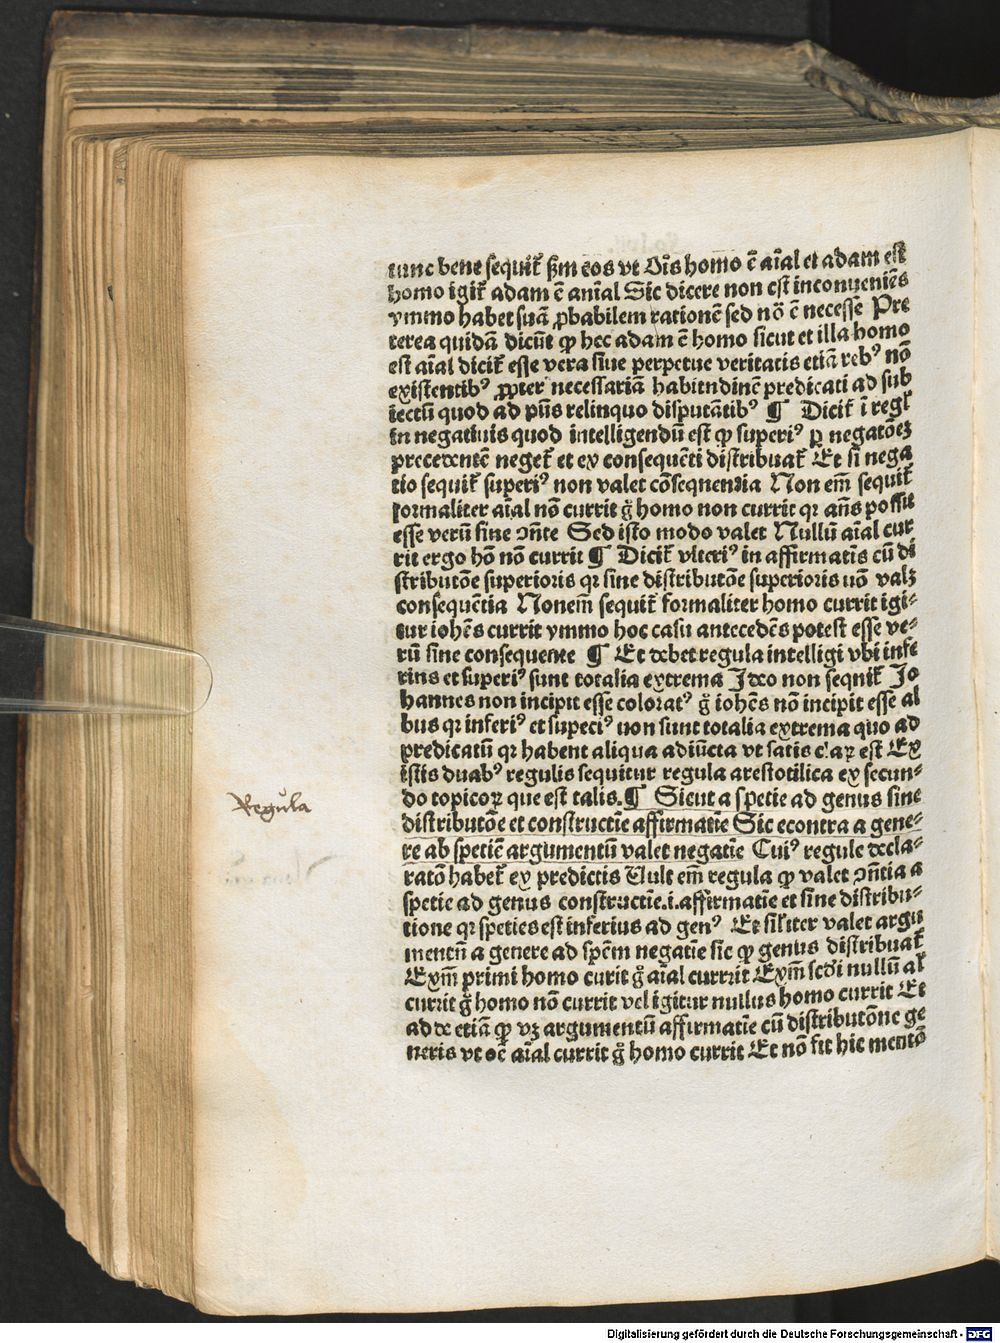 tunc bene sequit᷑ ẜm eos vt Oı̄s homo ē aı̄al et adam est
homo igit᷑ adam ē anı̄al Sic dicere non est inconueniēs
ymmo habet suā ꝓbabilem rationē sed nō ē necesse Pre
terea quidā dicūt ꝙ hec adam ē homo sicut et illa homo
est aı̄al dicit᷑ esse vera siue perpetue veritatis etiā rebꝰ nō
existentibꝰ ꝓpter necessariā habitudinē predicati ad sub
iectū quod ad pn̄s relinquo disputātibꝰ ¶ Dicit᷑ ī regl᷑
in negatiuis quod intelligendū est ꝙ superiꝰ ꝑ negatōeꝫ
precedentē neget᷑ et ex consequēti distribuat᷑ Et si nega
tio sequit᷑ superiꝰ non valet cōsequentia Non em̄ sequit᷑
formaliter aı̄al nō currit g̊ homo non currit qꝛ an̄s possit
esse verū sine ꝯn̄te Sed isto modo valet Nullū aı̄al cur
rit ergo hō nō currit ¶ Dicit᷑ vlteriꝰ in affirmatīs cū di
stributōe superioris qꝛ sine distributōe superioris nō valꝫ
consequētia Nonem̄ sequit᷑ formaliter homo currit igi⸗
tur iohēs currit ymmo hoc casu antecedēs potest esse ve⸗
rū sine consequente ¶ Et debet regula intelligi vbi infe
rius et superiꝰ sunt totalia extrema Ideo non sequit᷑ Jo
hannes non incipit esse coloratꝰ g̊ iohēs nō incipit esse al
bus qꝛ inferiꝰ et supeciꝰ non sunt totalia extrema quo ad
predicatū qꝛ habent aliqua adiūcta vt satis claꝝ est Ex
istis duabꝰ regulis sequitur regula arestotilica ex secun⸗
do topicoꝝ que est talis.¶ Sicut a spetie ad genus sine
distributōe et constructīe affirmatīe Sic econtra a gene⸗
re ab spetiē argumentū valet negatīe Cuiꝰ regule decla⸗
ratō habet᷑ ex predictis Uult em̄ regula ꝙ valet ꝯn̄tia a
spetie ad genus constructīe.i.affirmatīe et sine distribu⸗
tione qꝛ speties est inferius ad genꝰ Et sil̄iter valet argu
mentū a genere ad spēm negatīe sic ꝙ genus distribuat᷑
Exm̄ primi homo curit g̊ aı̄al currrit Exm̄ scd̄i nullū al᷑
curit g̊ homo nō currit vel igitur nullus homo currit Et
ad de etiā ꝙ vꝫ argumentū affirmatīe cū distributōne ge
neris vt oē aı̄al currit g̊ homo currit Et nō fit hic mentō
Regŭla
Digitalisierung gefördert durch die Deutsche Forschungsgemeinschaft - DFG